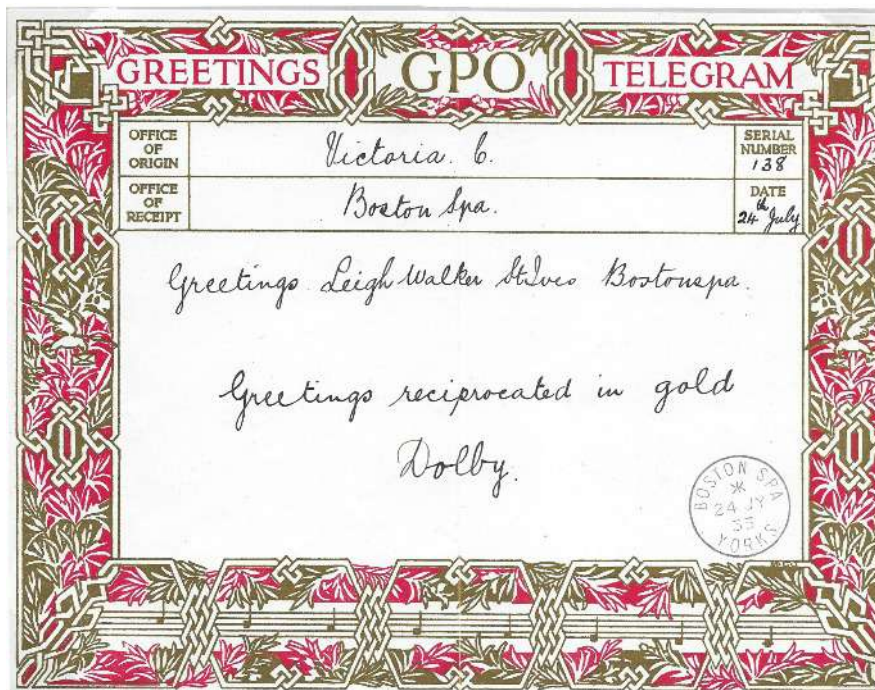 GREETINGS GPO TELEGRAM
OFFICE
OF
ORIGIN
Victoria. C.
SERIAL
NUMBER
138
OFFICE
OF
RECEIPT
Boston Spa.
DATE
24th July
Greetings Leigh Walker St Ives Bostonspa.
Greetings reciprocated in gold
Dolby.
BOSTON SPA
24 JY
35
YORKS